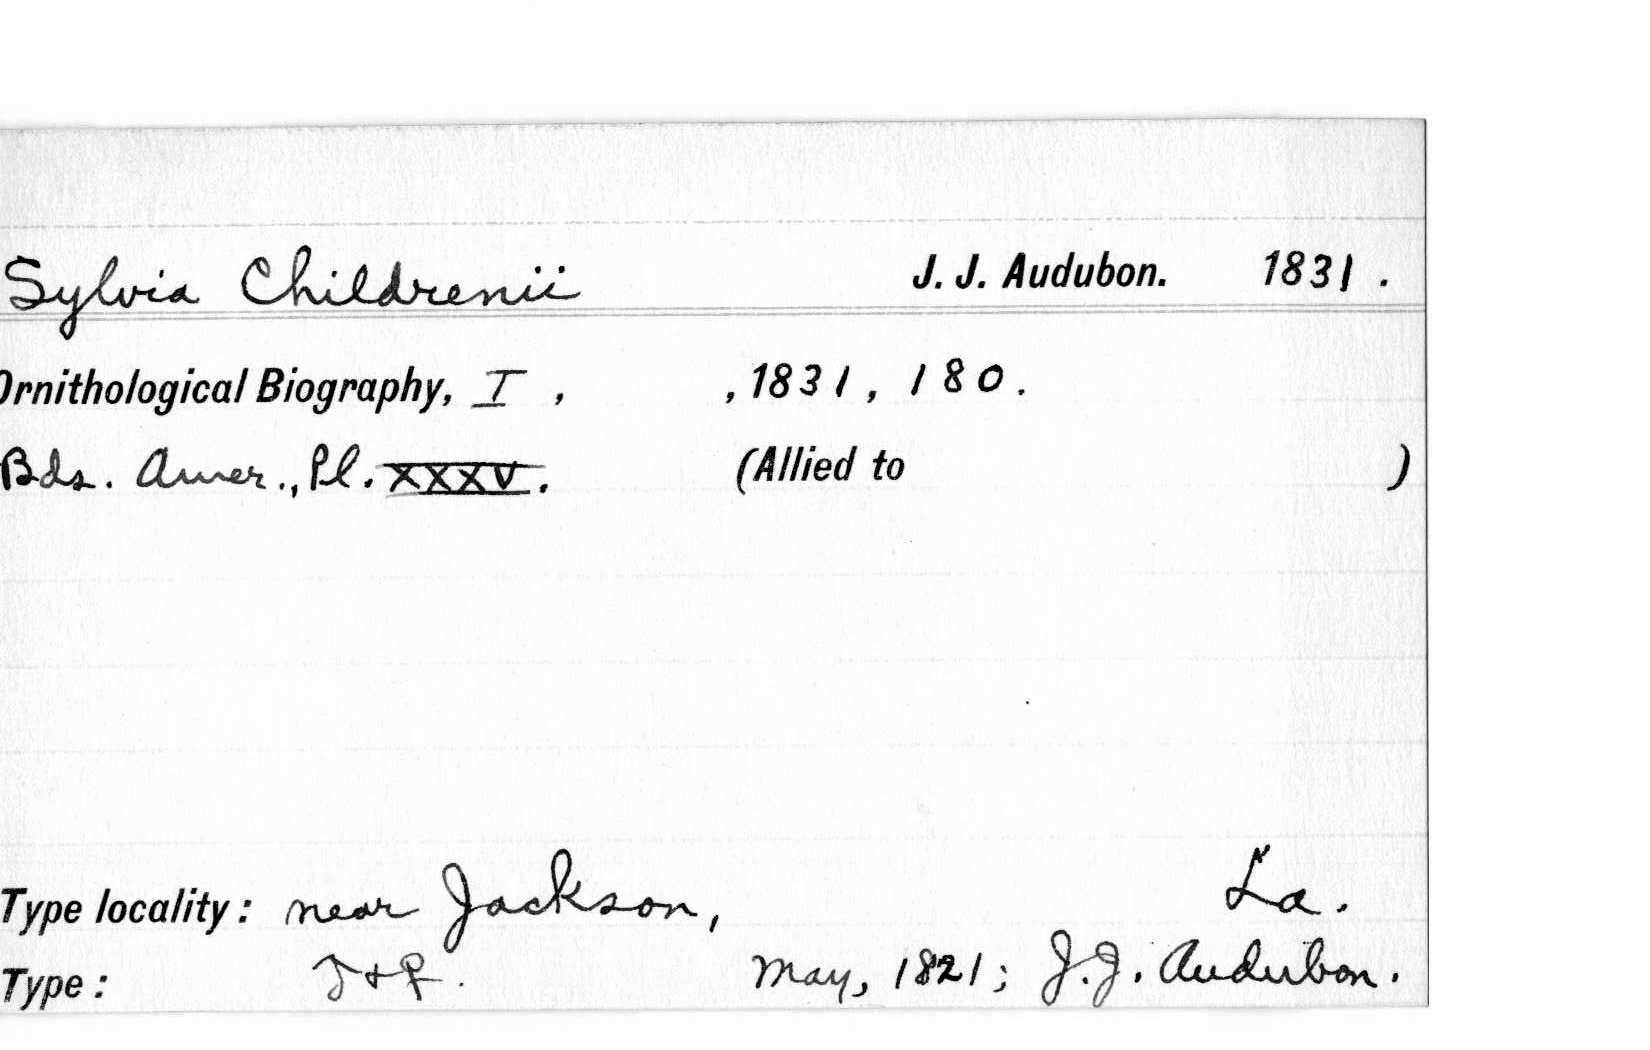 Sylvia Childrenii J. J. Audubon. 1831.
Ornithological Biography, I, , 1831, 180.
Bds. Amer., Pl. XXXV. (Allied to )
Type locality: near Jackson, La.
Type: ♂ + ♀. May, 1821; J.J. Audubon.